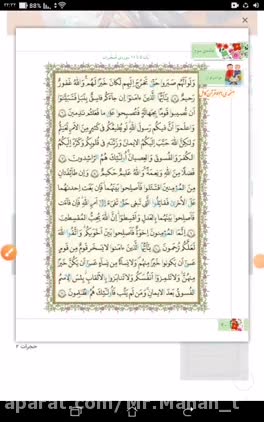 ۲۲:۲۲
%۸۸
جلسه‌ی سوم
وَلَوْ أَنَّهُمْ صَبَرُوا حَتَّىٰ تَخْرُجَ إِلَيْهِمْ لَكَانَ خَيْرًا لَهُمْ وَاللَّهُ غَفُورٌ
رَحِيمٌ ۵ يَا أَيُّهَا الَّذِينَ ءَامَنُوا إِنْ جَاءَكُمْ فَاسِقٌ بِنَبَإٍ فَتَبَيَّنُوا
أَنْ تُصِيبُوا قَوْمًا بِجَهَالَةٍ فَتُصْبِحُوا عَلَىٰ مَا فَعَلْتُمْ نَادِمِينَ ۶
وَاعْلَمُوا أَنَّ فِيكُمْ رَسُولَ اللَّهِ لَوْ يُطِيعُكُمْ فِي كَثِيرٍ مِنَ الْأَمْرِ لَعَنِتُّمْ
وَلَٰكِنَّ اللَّهَ حَبَّبَ إِلَيْكُمُ الْإِيمَانَ وَزَيَّنَهُ فِي قُلُوبِكُمْ وَكَرَّهَ إِلَيْكُمُ
الْكُفْرَ وَالْفُسُوقَ وَالْعِصْيَانَ أُولَٰئِكَ هُمُ الرَّاشِدُونَ ۷
فَضْلًا مِنَ اللَّهِ وَنِعْمَةً وَاللَّهُ عَلِيمٌ حَكِيمٌ ۸ وَإِنْ طَائِفَتَانِ
مِنَ الْمُؤْمِنِينَ اقْتَتَلُوا فَأَصْلِحُوا بَيْنَهُمَا فَإِنْ بَغَتْ إِحْدَاهُمَا
عَلَى الْأُخْرَىٰ فَقَاتِلُوا الَّتِي تَبْغِي حَتَّىٰ تَفِيءَ إِلَىٰ أَمْرِ اللَّهِ فَإِنْ فَاءَتْ
فَأَصْلِحُوا بَيْنَهُمَا بِالْعَدْلِ وَأَقْسِطُوا إِنَّ اللَّهَ يُحِبُّ الْمُقْسِطِينَ
۹ إِنَّمَا الْمُؤْمِنُونَ إِخْوَةٌ فَأَصْلِحُوا بَيْنَ أَخَوَيْكُمْ وَاتَّقُوا اللَّهَ
لَعَلَّكُمْ تُرْحَمُونَ ۱۰ يَا أَيُّهَا الَّذِينَ ءَامَنُوا لَا يَسْخَرْ قَوْمٌ مِنْ قَوْمٍ
عَسَىٰ أَنْ يَكُونُوا خَيْرًا مِنْهُمْ وَلَا نِسَاءٌ مِنْ نِسَاءٍ عَسَىٰ أَنْ يَكُنَّ خَيْرًا
مِنْهُنَّ وَلَا تَلْمِزُوا أَنْفُسَكُمْ وَلَا تَنَابَزُوا بِالْأَلْقَابِ بِئْسَ الِاسْمُ
الْفُسُوقُ بَعْدَ الْإِيمَانِ وَمَنْ لَمْ يَتُبْ فَأُولَٰئِكَ هُمُ الظَّالِمُونَ ۱۱
حجرات ۲
aparat.com/Mr.Mahan_t